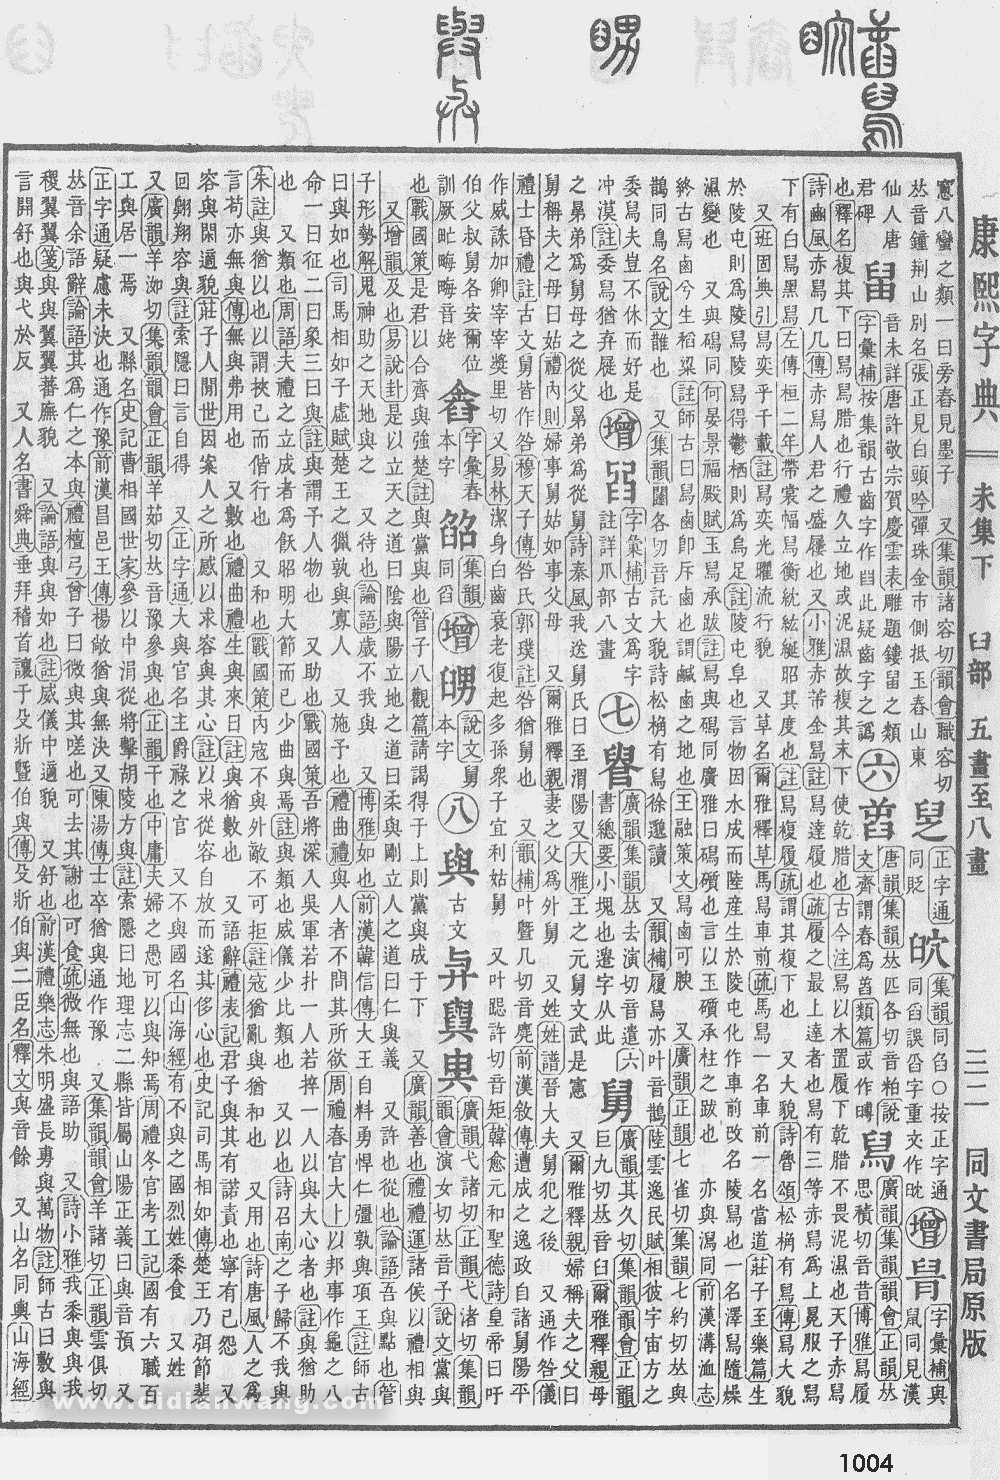 康熙字典 未集下 臼部 五畫至八畫 三二 同文書局原版
窻八蠻之類一曰旁舂見墨子 又集韻諸容切韻會職容切
𠀤音鐘荆山別名張正見白頭吟彈珠金市側抵玉舂山東
正字通
同貶
集韻同舀○按正字通
同舀誤舀字重文作㫐
增
字彙補與
鼠同見漢
仙人唐
君碑
音未詳唐許敬宗賀慶雲表雕題鏤䑓之類
字彙補按集韻古齒字作𦥒此疑齒字之譌
六
唐韻集韻𠀤匹各切音粕說
文齊謂舂為𦥛類篇或作㬍
舄
廣韻集韻韻會正韻𠀤
思積切音昔博雅舄履
也釋名複其下曰舄舄腊也行禮久立地或泥濕故複其末下使乾腊也古今注舄以木置履下乾腊不畏泥濕也天子赤舄
詩豳風赤舄几几傳赤舄人君之盛屨也又小雅赤芾金舄註舄達屨也疏屨之最上達者也舄有三等赤舄為上冕服之舄
下有白舄黑舄左傳桓二年帶裳幅舄衡紞紘綖昭其度也註舄複履疏謂其複下也 又大貌詩魯頌松桷有舄傳舄大貌
又班固典引舄奕乎千載註舄奕光曜流行貌 又草名爾雅釋草馬舄車前疏馬舄一名車前一名當道莊子至樂篇生
於陵屯則為陵舄陵舄得鬱棲則為烏足註陵屯阜也言物因水成而陸產生於陵屯化作車前改名陵舄也一名澤舄隨燥
濕變也 又與磶同何晏景福殿賦玉舄承跋註舄與磶同廣雅曰磶礩也言以玉礩承柱之跋也 亦與潟同前漢溝洫志
終古舄鹵兮生稻粱註師古曰舄卽斥鹵也謂鹹鹵之地也王融策文舄鹵可腴 又廣韻正韻七雀切集韻七約切𠀤與
鵲同鳥名說文䧿也 又集韻闥各切音託大貌詩松桷有舄徐邈讀 又韻補履舄亦叶音鵲陸雲逸民賦相彼宇宙方之
委舄夫豈不休而好是
冲漠註委舄猶弃屣也
增
字彙補古文為字
註詳爪部八畫
七
廣韻集韻𠀤去演切音遣
書總要小塊也邉字从此
六
舅
廣韻其久切集韻韻會正韻
巨九切𠀤音臼爾雅釋親母
之晜弟為舅母之從父晜弟為從舅詩秦風我送舅氏曰至渭陽又大雅王之元舅文武是憲 又爾雅釋親婦稱夫之父曰
舅稱夫之母曰姑禮內則婦事舅姑如事父母 又爾雅釋親妻之父為外舅 又姓姓譜晉大夫舅犯之後 又通作咎儀
禮士昏禮註古文舅皆作咎穆天子傳咎氏郭璞註咎猶舅也 又韻補叶暨几切音麂前漢敘傳遭成之逸政自諸舅陽平
作威誅加卿宰宰獎里切又易林潔身白齒衰老復起多孫衆子宜利姑舅 又叶䀠許切音矩韓愈元和聖德詩皇帝曰吁
伯父叔舅各安爾位
訓厥甿畮畮音姥
字彙舂
本字
集韻
同舀
增
說文舅
本字
八
與
古文
廣韻弋諸切正韻弋渚切集韻
韻會演女切𠀤音予說文黨與
也戰國策是君以合齊與強楚註與黨與也管子八觀篇請謁得于上則黨與成于下 又廣韻善也禮禮運諸侯以禮相與
又增韻及也易說卦是以立天之道曰陰與陽立地之道曰柔與剛立人之道曰仁與義 又許也從也論語吾與點也管
子形勢解見神助之天地與之 又待也論語歲不我與 又博雅如也前漢韓信傳大王自料勇悍仁彊孰與項王註師古
曰與如也司馬相如子虛賦楚王之獵孰與寡人 又施予也禮曲禮與人者不問其所欲周禮春官大卜以邦事作龜之八
命一曰征二曰象三曰與註與謂予人物也 又助也戰國策吾將深入吳軍若扑一人若捽一人以與大心者也註與猶助
也 又類也周語夫禮之立成者為飫昭明大節而已少曲與焉註與類也威儀少比類也 又以也詩召南之子歸不我與
朱註與猶以也以謂挾己而偕行也 又和也戰國策內寇不與外敵不可拒註寇猶亂與猶和也 又用也詩唐風人之為
言苟亦無與傳無與弗用也 又數也禮曲禮生與來日註與猶數也 又語辭禮表記君子與其有諾責也寧有已怨 又
容與閑適貌莊子人閒世因案人之所感以求容與其心註以求從容自放而遂其侈心也史記司馬相如傳楚王乃弭節裴
回翱翔容與註索隱曰言自得 又正字通大與官名主爵祿之官 又不與國名山海經有不與之國烈姓黍食 又姓
又廣韻羊洳切集韻韻會正韻羊茹切𠀤音豫參與也正韻干也中庸夫婦之愚可以與知焉周禮冬官考工記國有六職百
工與居一焉 又縣名史記曹相國世家參以中涓從將擊胡陵方與註索隱曰地理志二縣皆屬山陽正義曰與音預 又
正字通疑慮未決也通作豫前漢昌邑王傳楊敞猶與無決又陳湯傳士卒猶與通作豫 又集韻韻會羊諸切正韻雲俱切
𠀤音余語辭論語其為仁之本與禮檀弓曾子曰微與其嗟也可去其謝也可食疏微無也與語助 又詩小雅我黍與與我
稷翼翼箋與與翼翼蕃廡貌 又論語與與如也註威儀中適貌 又舒也前漢禮樂志朱明盛長旉與萬物註師古曰旉與
言開舒也與弋於反 又人名書舜典垂拜稽首讓于殳斨暨伯與傳殳斨伯與二臣名釋文與音餘 又山名同輿山海經
www.cidianwang.com
1004